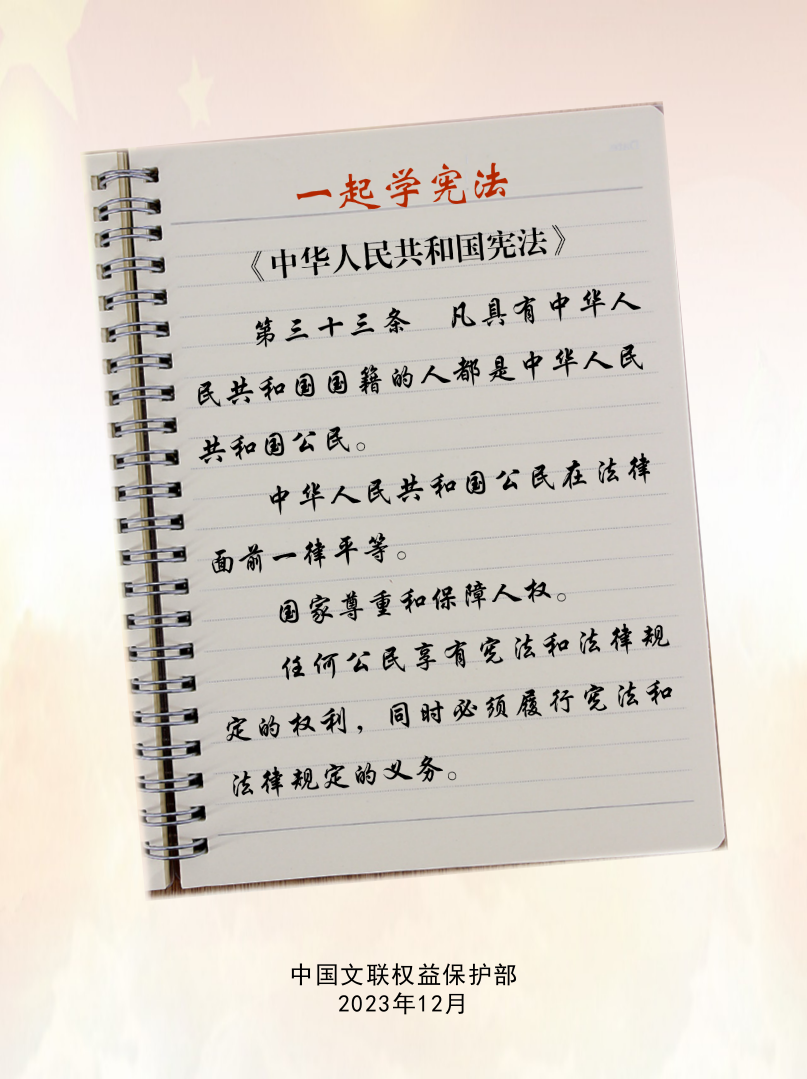 一起学宪法
《中华人民共和国宪法》
第三十三条　凡具有中华人
民共和国国籍的人都是中华人民
共和国公民。
中华人民共和国公民在法律
面前一律平等。
国家尊重和保障人权。
任何公民享有宪法和法律规
定的权利，同时必须履行宪法和
法律规定的义务。
中国文联权益保护部
2023年12月